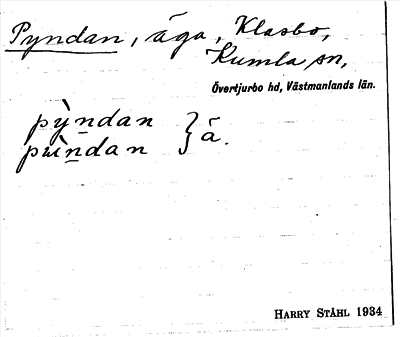 Pyndan, äga, Klasbo,
Kumla sn,
Övertjurbo hd, Västmanlands län.
pỳndan } å.
pùindan
HARRY STÅHL 1934